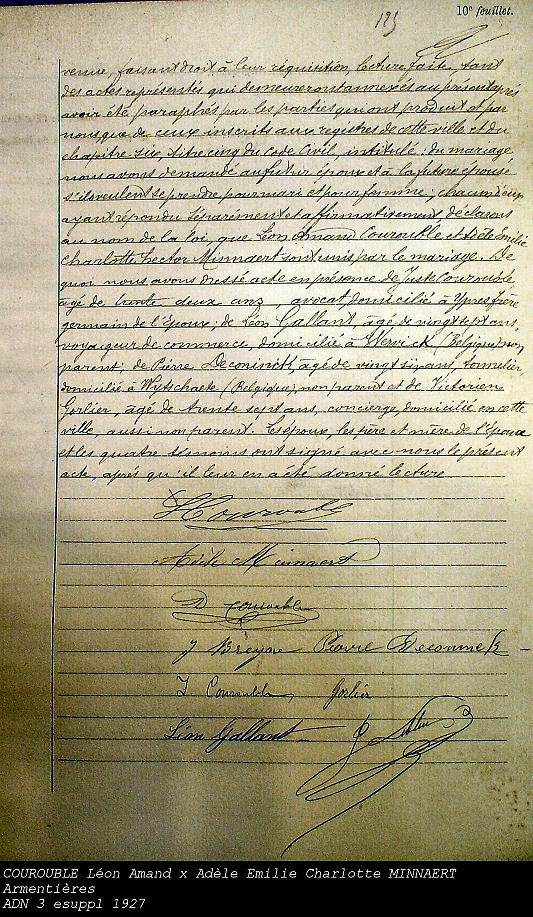 10e feuillet.
venue, faisant droit à leur réquisition, lecture faite, tant
des actes représentés qui demeureront annexés au présent après
avoir été paraphés par les parties qui ont produit et par
nous, que de ceux inscrits aux registres de cette ville et du
chapitre six, titre cinq du Code Civil, intitulé: du mariage,
nous avons demandé au futur époux et à la future épouse
s'ils veulent se prendre pour mari et pour femme; chacun d'eux
ayant répondu séparément et affirmativement, déclarons
au nom de la loi, que Léon Amand Courouble et Adèle Emilie
Charlotte Hector Minnaert sont unis par le mariage. De
quoi nous avons dressé acte en présence de Juste Courouble
âgé de trente deux ans, avocat, domicilié à Ypres, frère
germain de l'Epoux; de Léon Gallant, âgé de vingt sept ans,
voyageur de commerce, domicilié à Wervick (Belgique) non
parent; de Pierre Deconinck, âgé de vingt six ans, tonnelier,
domicilié à Wytschaete (Belgique), non parent et de Victorien
Gorlier, âgé de trente sept ans, concierge, domicilié en cette
ville, aussi non parent. Les époux, les père et mère de l'époux
et les quatre témoins ont signé avec nous le présent
acte, après qu'il leur en a été donné lecture
L Courouble
Adèle Minnaert
D Courouble
J Breyne Pierre Deconinck
J Courouble Gorlier
Léon Gallant
COUROUBLE Léon Amand x Adèle Emilie Charlotte MINNAERT
Armentières
ADN 3 esuppl 1927